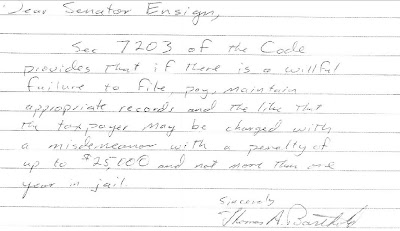 Dear Senator Ensign,
Sec 7203 of the Code
provides that if there is a willful
failure to file, pay, maintain
appropriate records and the like that
the taxpayer may be charged with
a misdemeanor with a penalty of
up to $25,000 and not more than one
year in jail.
Sincerely
Thomas A.